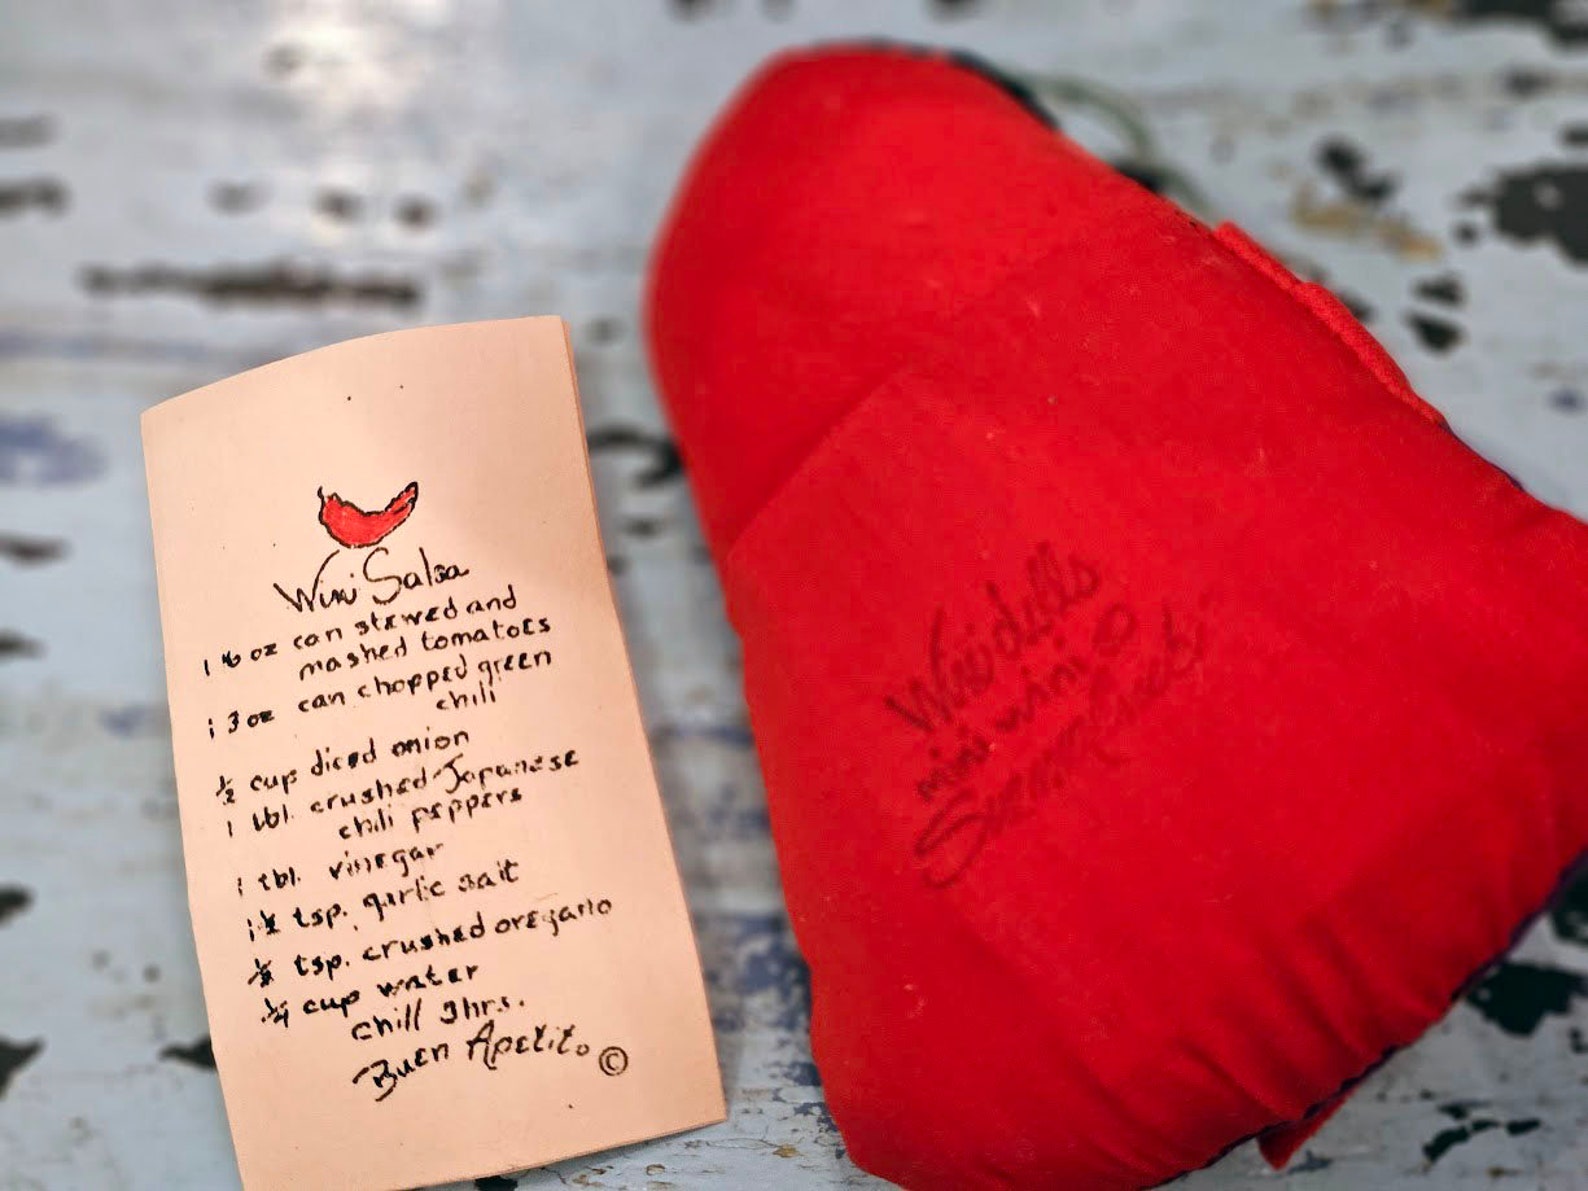 Wini Salsa
1 16 oz can stewed and
mashed tomatoes
1 3 oz can chopped green
chili
½ cup diced onion
1 tbl. crushed Japanese
chili peppers
1 tbl. vinegar
1½ tsp. garlic salt
½ tsp. crushed oregano
¼ cup water
chill 3hrs.
Buen Apetito ©
Winidolls
mini wini ©